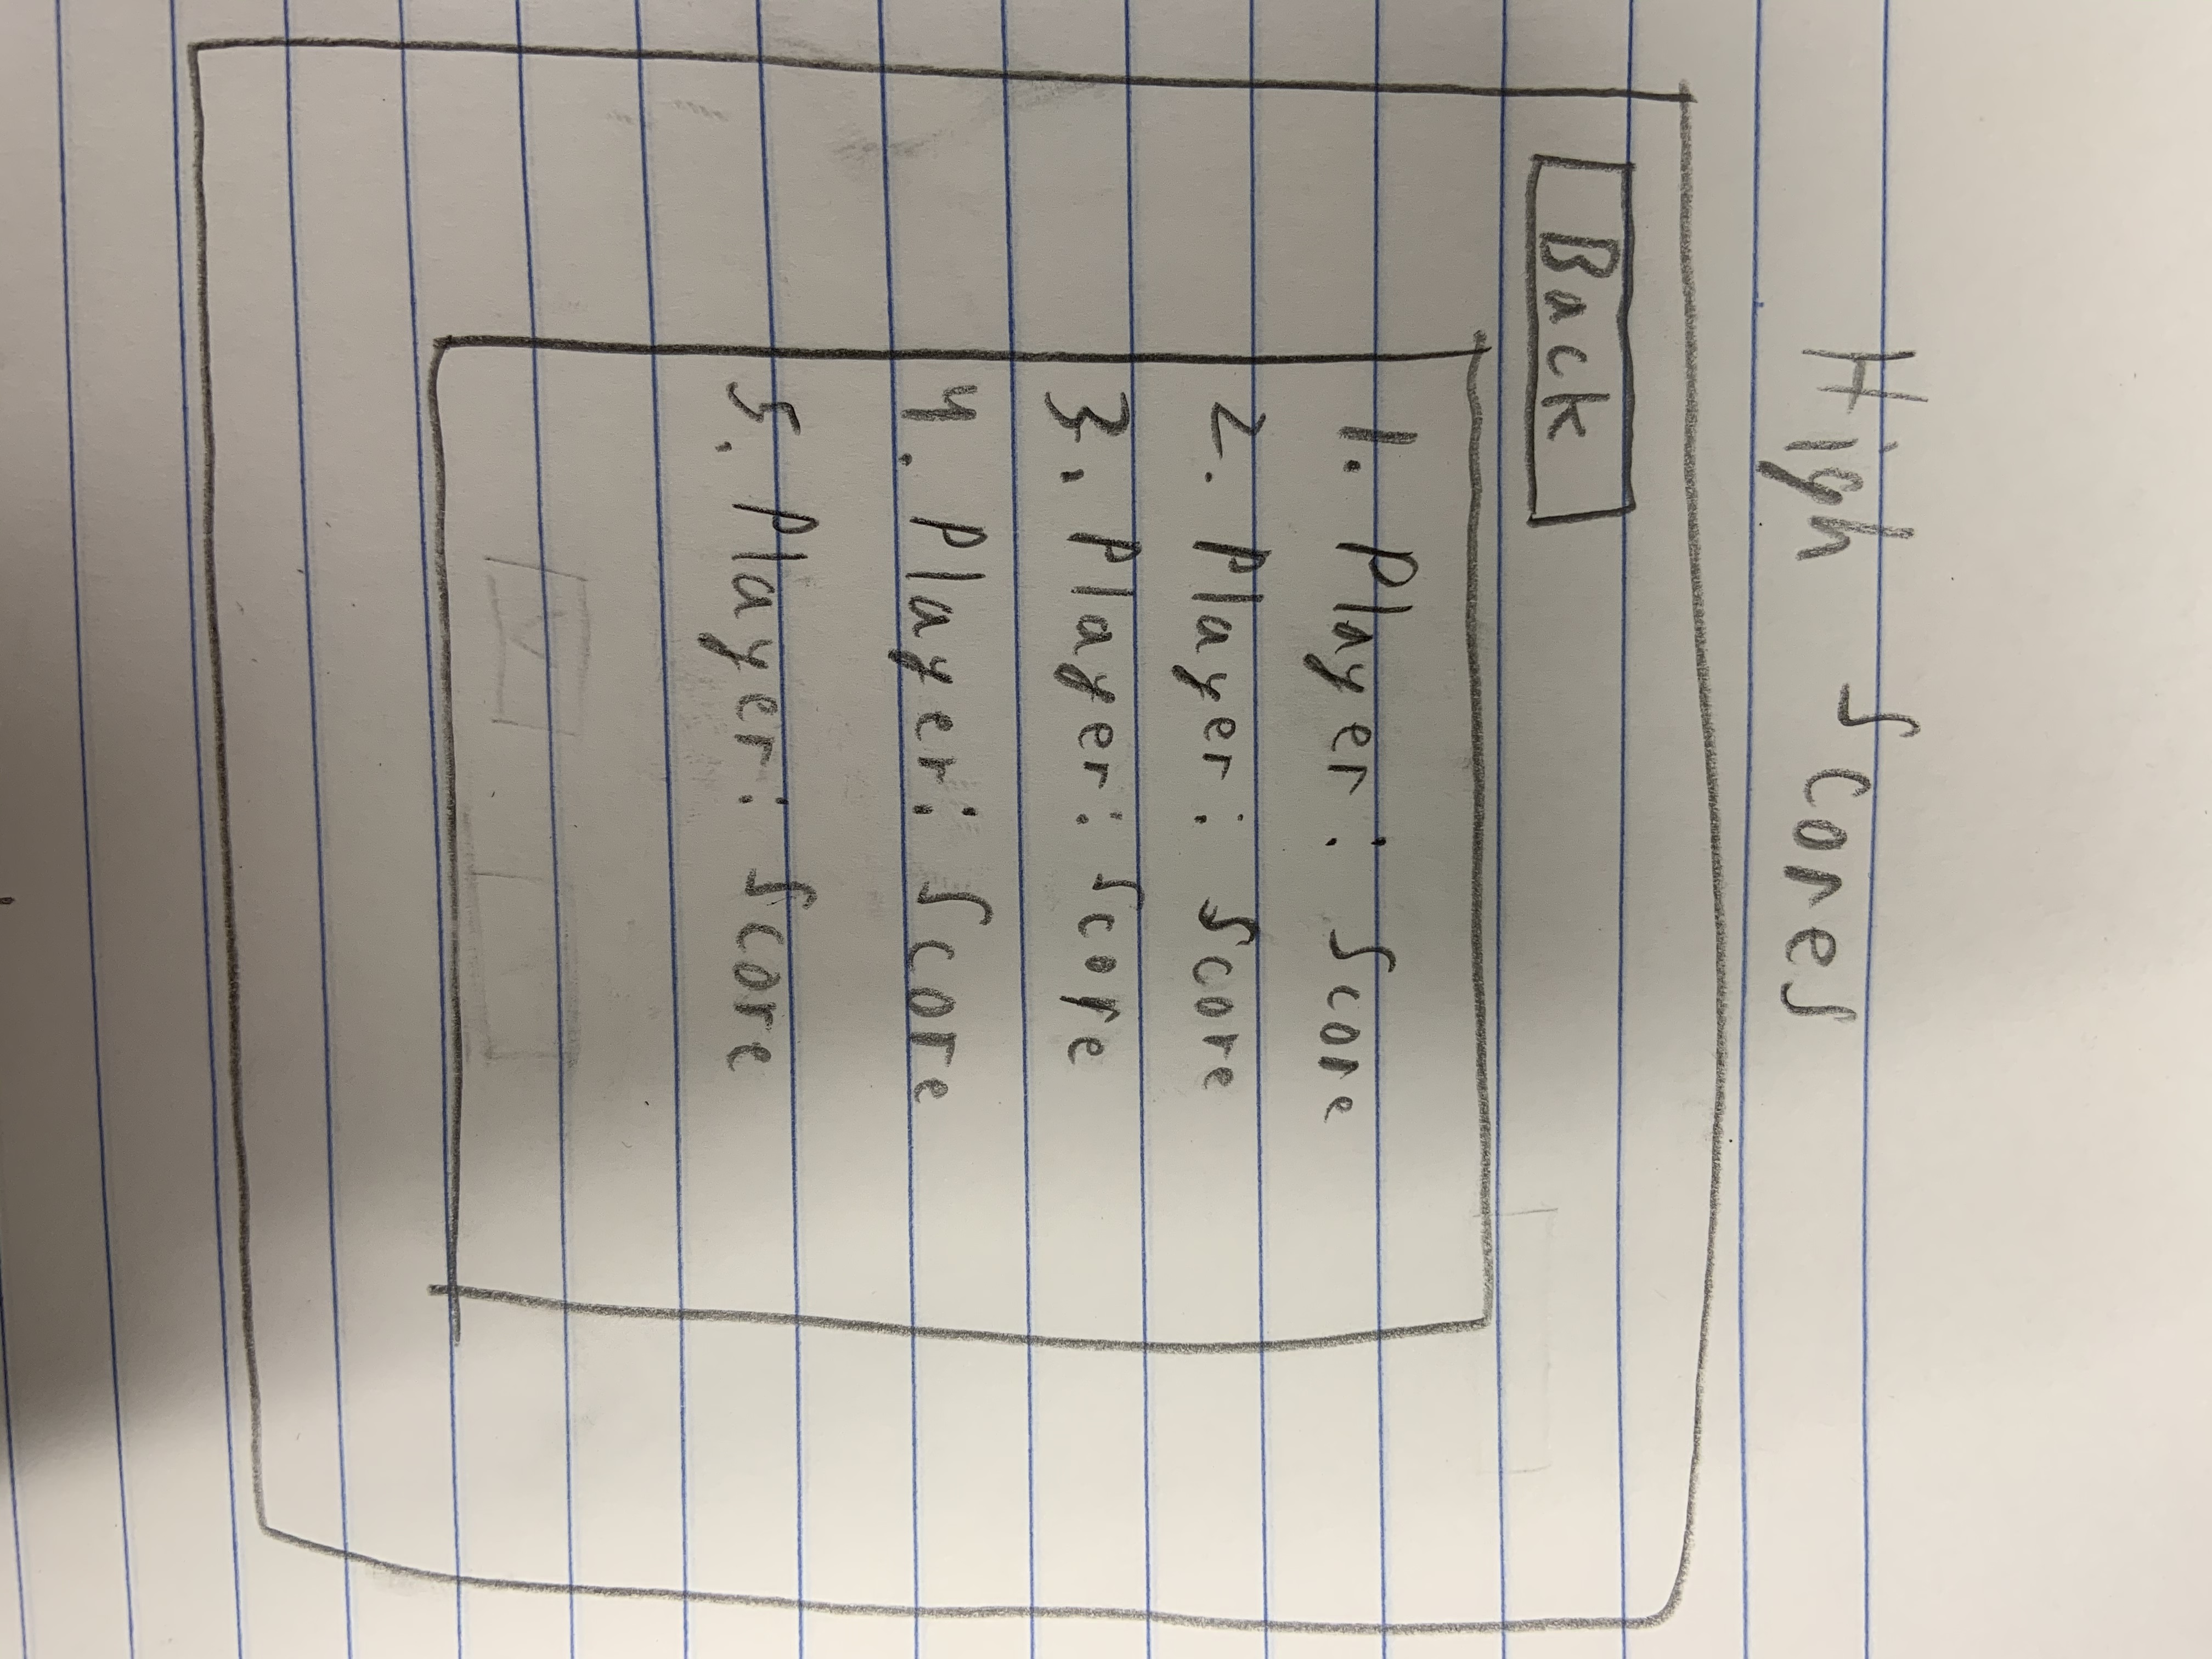 High Scores
Back
1. Player: Score
2. Player: Score
3. Player: Score
4. Player: Score
5. Player: Score